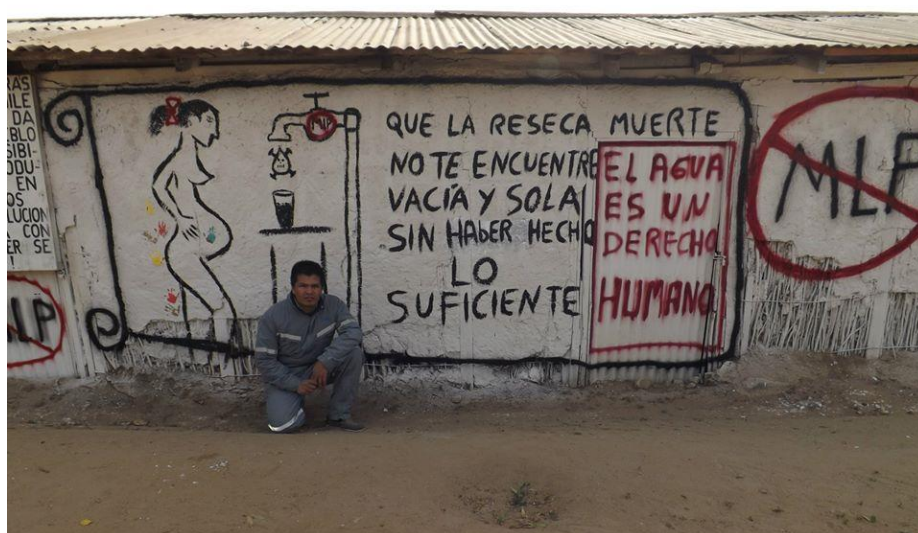 RAS
ILE
DA
EBLO
SIBI-
ODU-
EN
OS
LUCION
CON
ER SE
MLP
MLP
QUE LA RESECA MUERTE
NO TE ENCUENTRE
VACÍA Y SOLA
SIN HABER HECHO
LO
SUFICIENTE
EL AGUA
ES UN
DERECHO
HUMANO
MLP